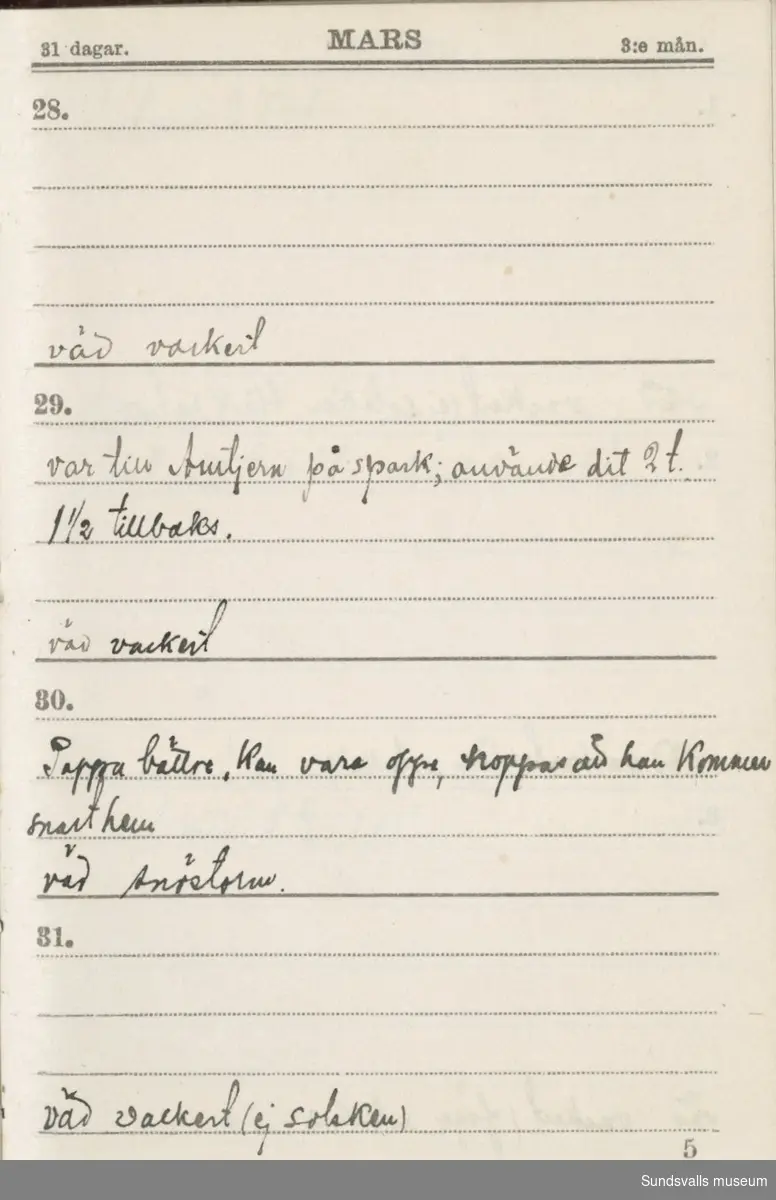 31 dagar. MARS 3:e mån.
28.
väd vackert
29.
var till Amtjern på spark; använde dit 2 t.
1 1/2 tillbaks.
väd vackert
30.
Pappa bättre, kan vara oppe, hoppas att han kommer
snart hem
väd snöstorm.
31.
väd vackert (ej solsken)
5
Sundsvalls museum